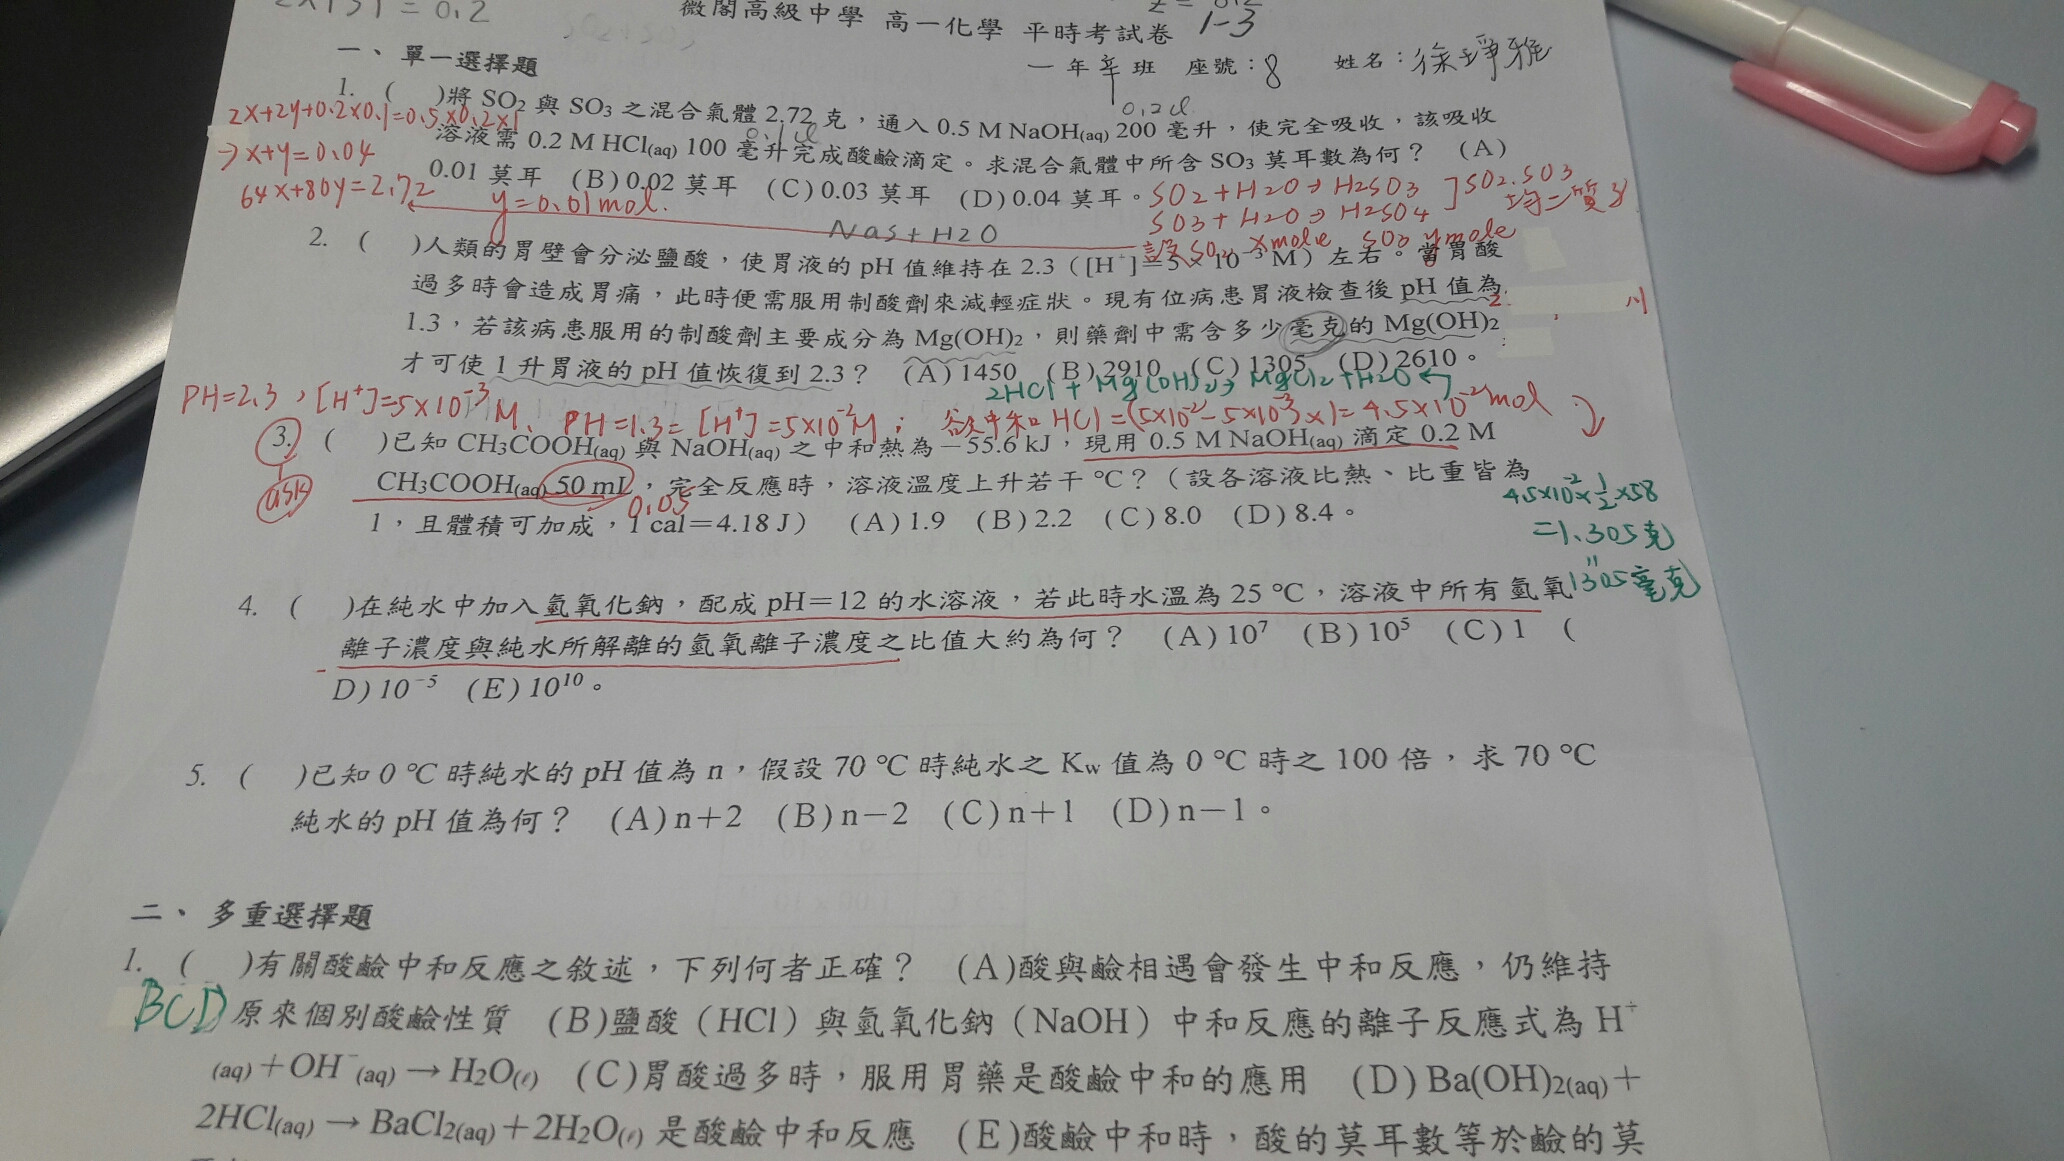 2x+3y=0.2
微閣高級中學 高一化學 平時考試卷 1-3
一、單一選擇題
一年辛班 座號：8 姓名：徐琤雅
0.2l
1. ( )將 SO2 與 SO3 之混合氣體 2.72 克，通入 0.5 M NaOH(aq) 200 毫升，使完全吸收，該吸收
2x+2y+0.2x0.1=0.5x0.2x1
0.1l
溶液需 0.2 M HCl(aq) 100 毫升完成酸鹼滴定。求混合氣體中所含 SO3 莫耳數為何？ (A)
→x+y=0.04
0.01 莫耳 (B)0.02 莫耳 (C)0.03 莫耳 (D)0.04 莫耳。
64x+80y=2.72
y=0.01mol.
SO2+H2O→H2SO3 ]SO2.SO3
SO3+H2O→H2SO4 均二質子
設SO2 xmole SO3 ymole
Nas+H2O
2. ( )人類的胃壁會分泌鹽酸，使胃液的 pH 值維持在 2.3（[H⁺]=5×10⁻³ M）左右。當胃酸
過多時會造成胃痛，此時便需服用制酸劑來減輕症狀。現有位病患胃液檢查後 pH 值為
1.3，若該病患服用的制酸劑主要成分為 Mg(OH)2，則藥劑中需含多少毫克的 Mg(OH)2
才可使 1 升胃液的 pH 值恢復到 2.3？ (A)1450 (B)2910 (C)1305 (D)2610。
2HCl+Mg(OH)2→MgCl2+H2O
PH=2.3，[H⁺]=5×10⁻³M、PH=1.3=[H⁺]=5×10⁻²M； 欲中和HCl=(5×10⁻²-5×10⁻³×1)=4.5×10⁻²mol
4.5×10⁻²×1/2×58
=1.305克
=1305毫克
3. ( )已知 CH3COOH(aq) 與 NaOH(aq) 之中和熱為－55.6 kJ，現用 0.5 M NaOH(aq) 滴定 0.2 M
ask
CH3COOH(aq) 50 mL，完全反應時，溶液溫度上升若干 ℃？（設各溶液比熱、比重皆為
0.05
1，且體積可加成，1 cal＝4.18 J） (A)1.9 (B)2.2 (C)8.0 (D)8.4。
4. ( )在純水中加入氫氧化鈉，配成 pH＝12 的水溶液，若此時水溫為 25 ℃，溶液中所有氫氧
離子濃度與純水所解離的氫氧離子濃度之比值大約為何？ (A)10⁷ (B)10⁵ (C)1 (
D)10⁻⁵ (E)10¹⁰。
5. ( )已知 0 ℃ 時純水的 pH 值為 n，假設 70 ℃ 時純水之 Kw 值為 0 ℃ 時之 100 倍，求 70 ℃
純水的 pH 值為何？ (A)n＋2 (B)n－2 (C)n＋1 (D)n－1。
二、多重選擇題
1. ( )有關酸鹼中和反應之敘述，下列何者正確？ (A)酸與鹼相遇會發生中和反應，仍維持
BCD
原來個別酸鹼性質 (B)鹽酸（HCl）與氫氧化鈉（NaOH）中和反應的離子反應式為 H⁺
(aq)＋OH⁻(aq)→H2O(ℓ) (C)胃酸過多時，服用胃藥是酸鹼中和的應用 (D)Ba(OH)2(aq)＋
2HCl(aq)→BaCl2(aq)＋2H2O(ℓ) 是酸鹼中和反應 (E)酸鹼中和時，酸的莫耳數等於鹼的莫